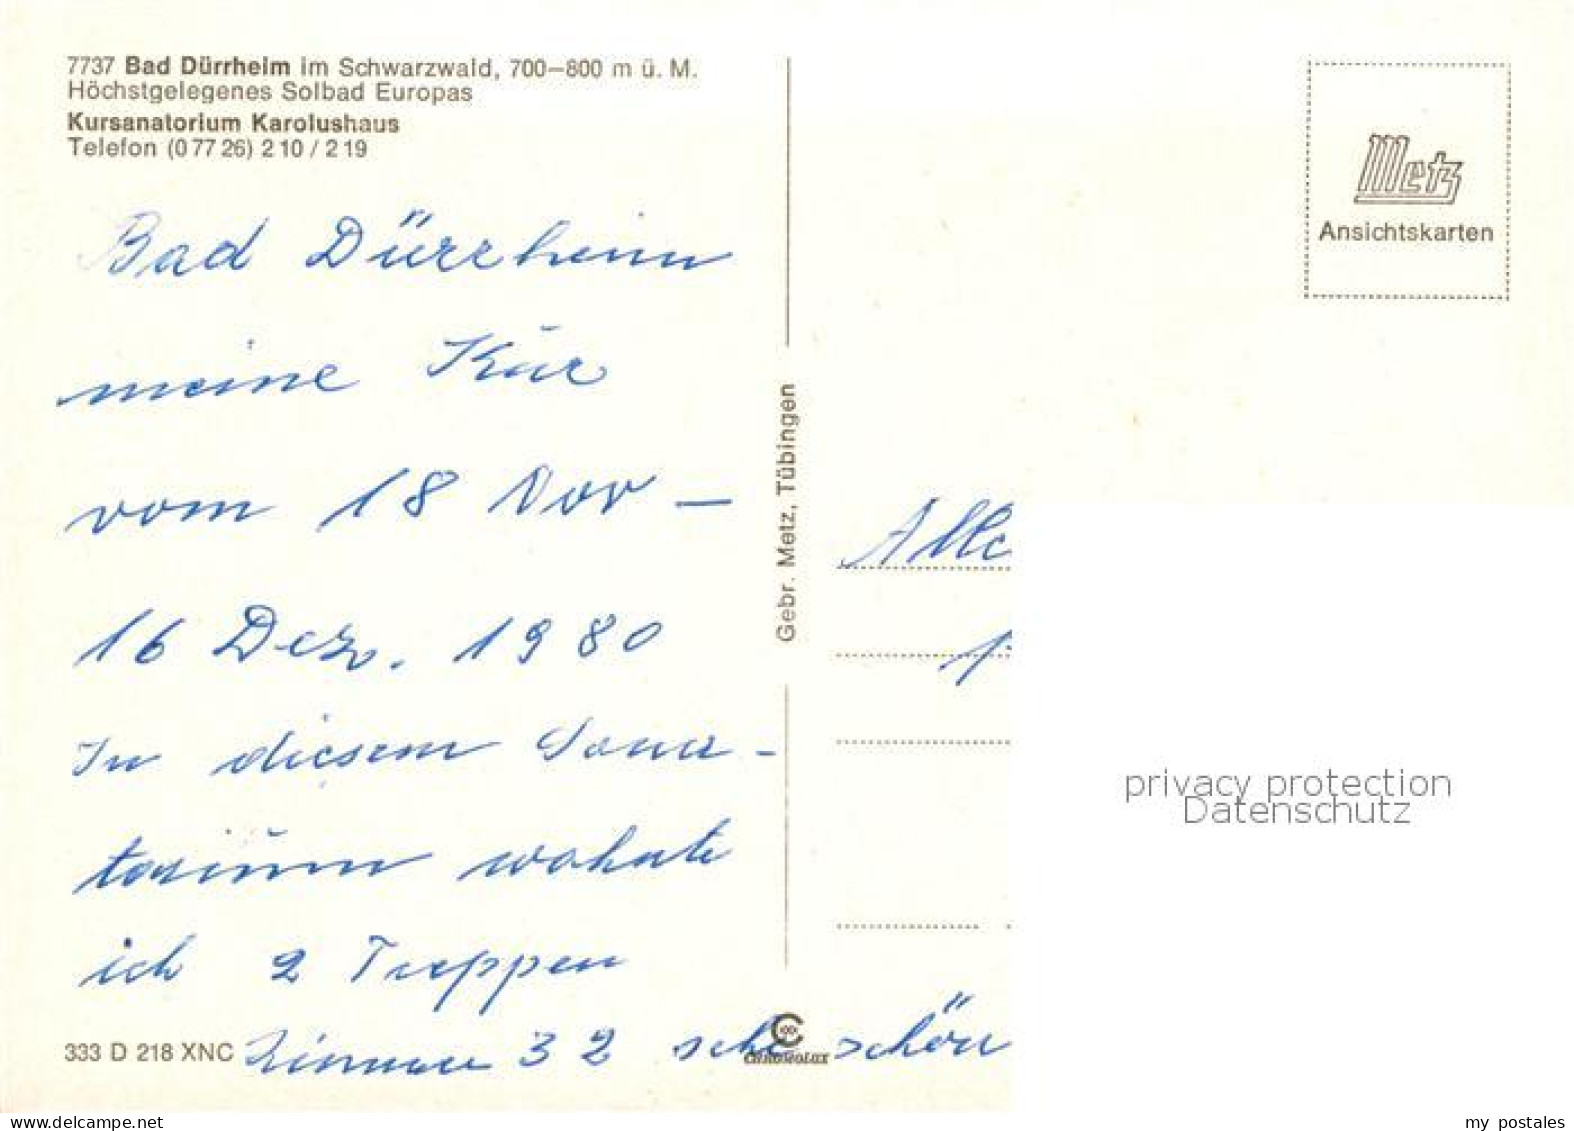 7737 Bad Dürrheim im Schwarzwald, 700–800 m ü. M.
Höchstgelegenes Solbad Europas
Kursanatorium Karolushaus
Telefon (0 77 26) 2 10 / 2 19
Bad Dürrheim
meine Kur
vom 18 Nov –
16 Dez. 1980
In diesem Sana-
torium wohnte
ich 2 Treppen
Zimmer 32 sehr schön
333 D 218 XNC
CHROMOLUX
Gebr. Metz, Tübingen
Metz
Ansichtskarten
privacy protection
Datenschutz
my postales